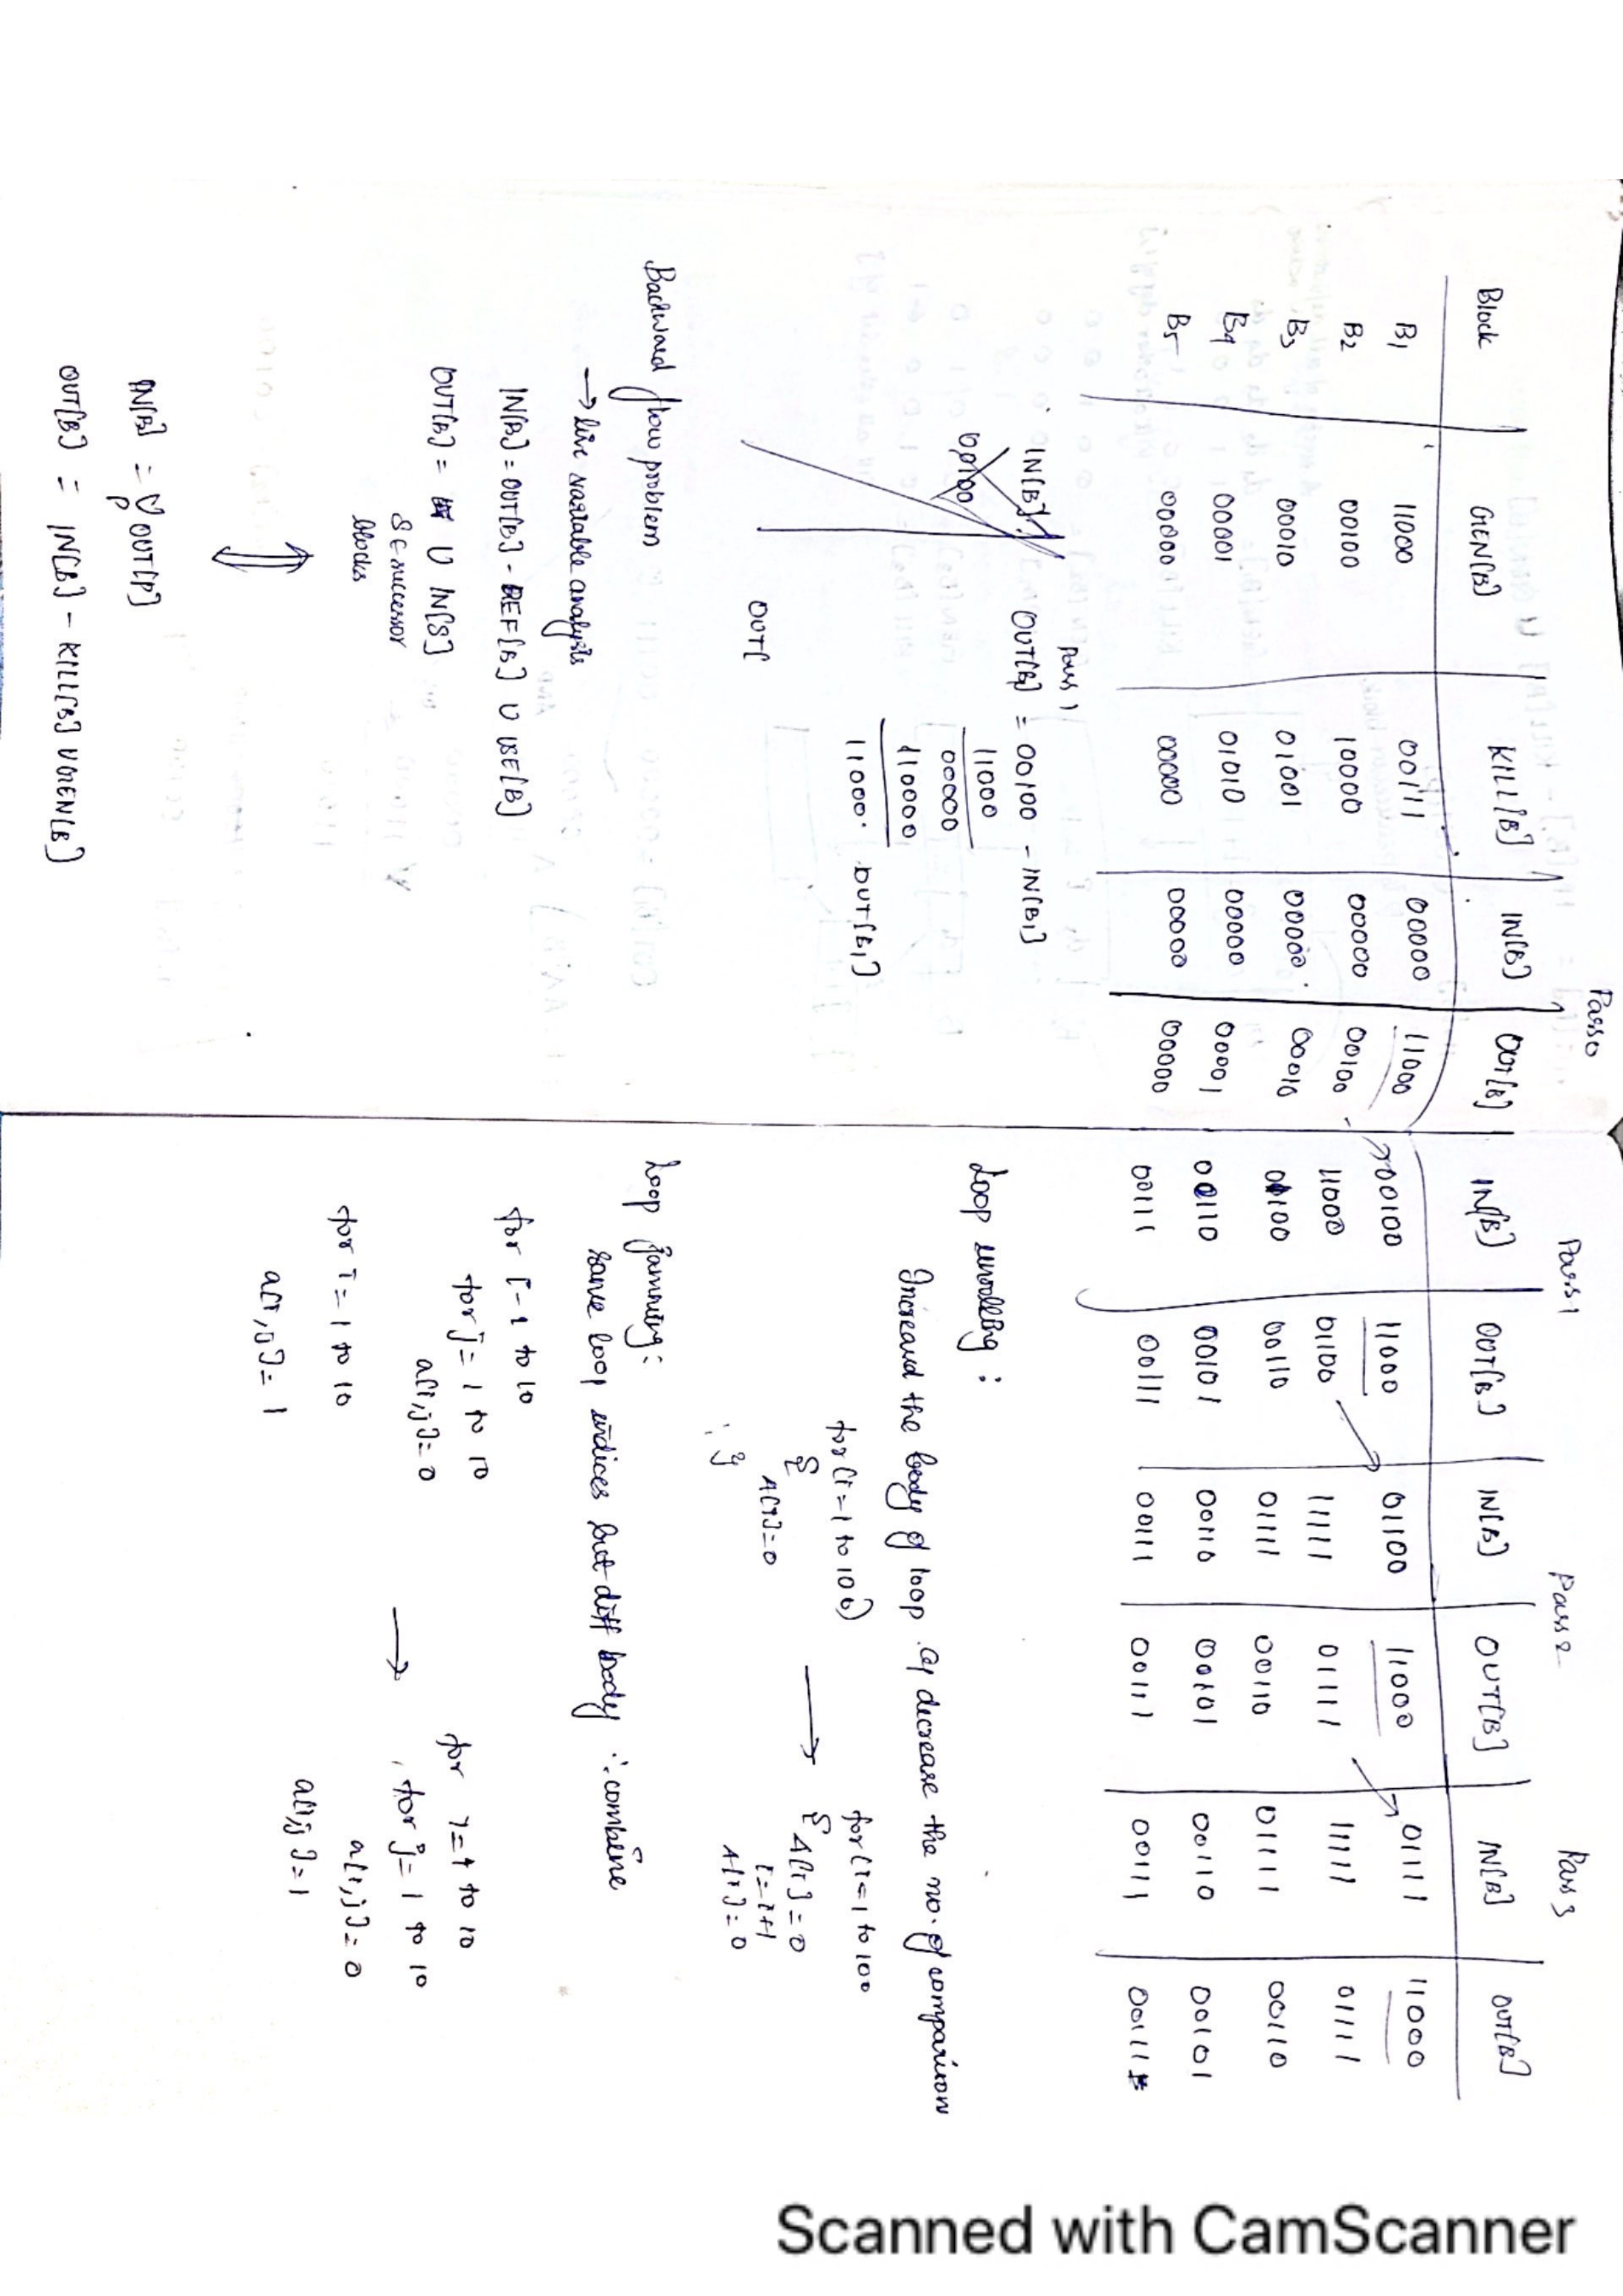 Pass 0 Pass 1 Pass 2 Pass 3
Block GEN[B] KILL[B] IN[B] OUT[B] IN[B] OUT[B] IN[B] OUT[B] IN[B] OUT[B]
B1 11000 00111 00000 11000 00100 11000 01100 11000 01111 11000
B2 00100 10000 00000 00100 11000 01100 11111 01111 11111 01111
B3 00010 01001 00000 00010 00100 00110 01111 00110 01111 00110
B4 00001 01010 00000 00001 00110 00101 00110 00101 00110 00101
B5 00000 00000 00000 00000 00111 00111 00111 00111 00111 00111
Pass 1
IN[B] OUT[B1] = 00100 - IN[B1]
00100
11000
00000
110000
11000. OUT[B1]
OUT[
Backward flow problem
→ live variable analysis
IN[B] = OUT[B] - DEF[B] U USE[B]
OUT[B] = U IN[S]
S ∈ successor
blocks
IN[B] = U OUT[P]
P
OUT[B] = IN[B] - KILL[B] U GEN[B]
Loop unrolling :
Increased the body of loop decrease the no. of comparison
for (i=1 to 100)
{
A[i]=0
}
→
for (i=1 to 100
{ A[i]=0
i=i+1
A[i]=0
Loop jamming :
same loop indices but diff body ∴ combine
for i=1 to 10
for j=1 to 10
a[i,j]=0
for i=1 to 10
a[i,j]=1
→
for i=1 to 10
for j=1 to 10
a[i,j]=0
a[i,j]=1
Scanned with CamScanner